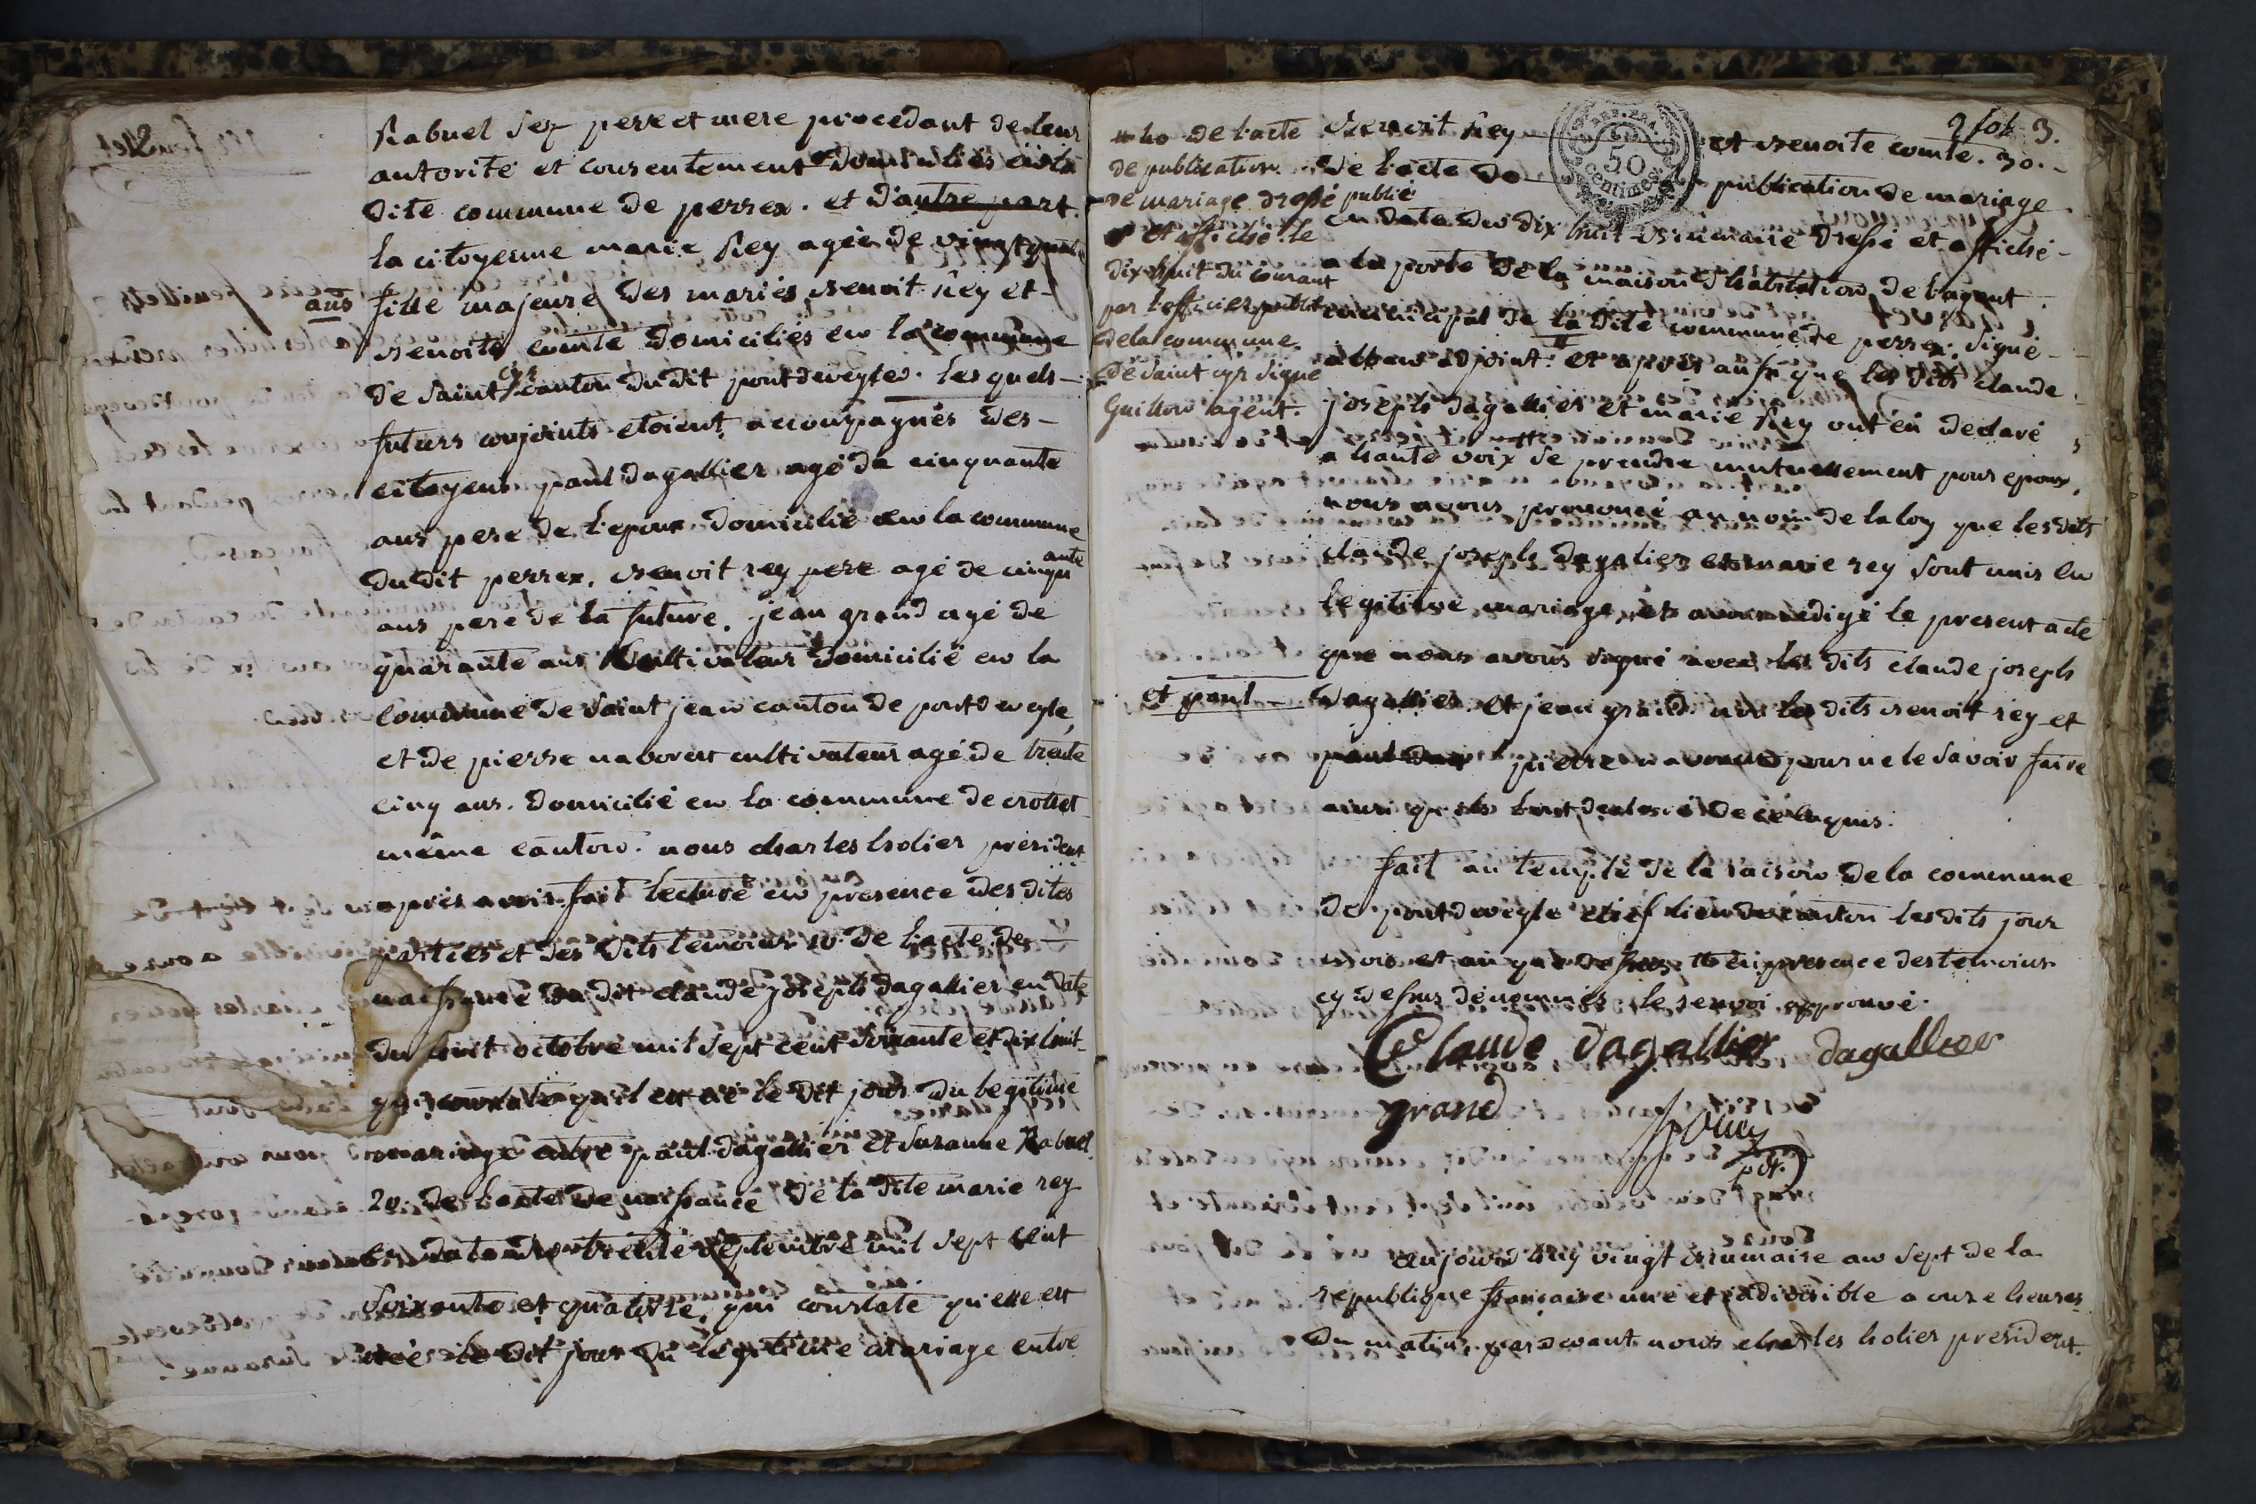 Rabuel ses pere et mere procedant de leur
autorité et consentement domiciliés en la
dite commune de perrex. et d'autre part.
la citoyenne marie Rey agée de vingt quatre
ans fille majeure des mariés benoit Rey et
benoite comte domiciliés en la commune
de saint cyr canton du dit pontdeveyle. les quels
futurs conjoints etoient accompagnés des
citoyens paul dagallier agé de cinquante
ans pere de l'epoux domicilié en la commune
du dit perrex. benoit rey pere agé de cinquante
ans pere de la future. jean grand agé de
quarante ans Cultivateur domicilié en la
commune de saint jean canton de pontdeveyle
et de pierre cultivateur agé de trente
cinq ans. domicilié en la commune de crottet
même canton. nous charles holier president
après avoir fait lecture en presence des dites
parties et des dits temoins 1o. de l'acte de
naissance du dit claude joseph dagallier en date
du huit octobre mil sept cent soixante et dix huit
qui constate qu'il est né le dit jour du legitime
mariage entre paul dagallier et suzanne Rabuel
2o. de l'acte de naissance de la dite marie rey
en date du trente septembre mil sept cent
soixante et quatorze, qui constate qu'elle est
née le dit jour du legitime mariage entre
2 fol. 3.
benoit Rey et benoite comte. 3o.
de l'acte de publication de mariage
publié
en date du dix huit brumaire dressé et affiché
a la porte de la maison d'habitation de l'agent
municipal de la dite commune de perrex. signé
adjoint. et après aussi que les dits claude
joseph dagallier et marie Rey ont eu declaré
a haute voix se prendre mutuellement pour epoux,
nous avons prononcé au nom de la loy que les dits
claude joseph dagalier et marie rey sont unis en
legitime mariage, et avons redigé le present acte
que nous avons signé avec les dits claude joseph
et paul dagallier et jean grand non les dits benoit rey et
pierre pour ne le savoir faire
ainsi qu'ils l'ont declaré de ce enquis.
fait au temple de la raison de la commune
de pontdeveyle chef lieu de canton les dits jour
mois et an que dessus en presence des temoins
cy dessus denommés. le renvoi approuvé.
4o de l'acte
de publication
de mariage dressé
et affiché le
dix huit du courant
par l'officier public
de la commune
de saint cyr signé
Guillon agent.
Claude dagallier dagallier
grand
pdt.
aujourd'huy vingt brumaire an sept de la
republique française une et indivisible a onze heures
du matin. pardevant nous charles holier president.
50
centimes